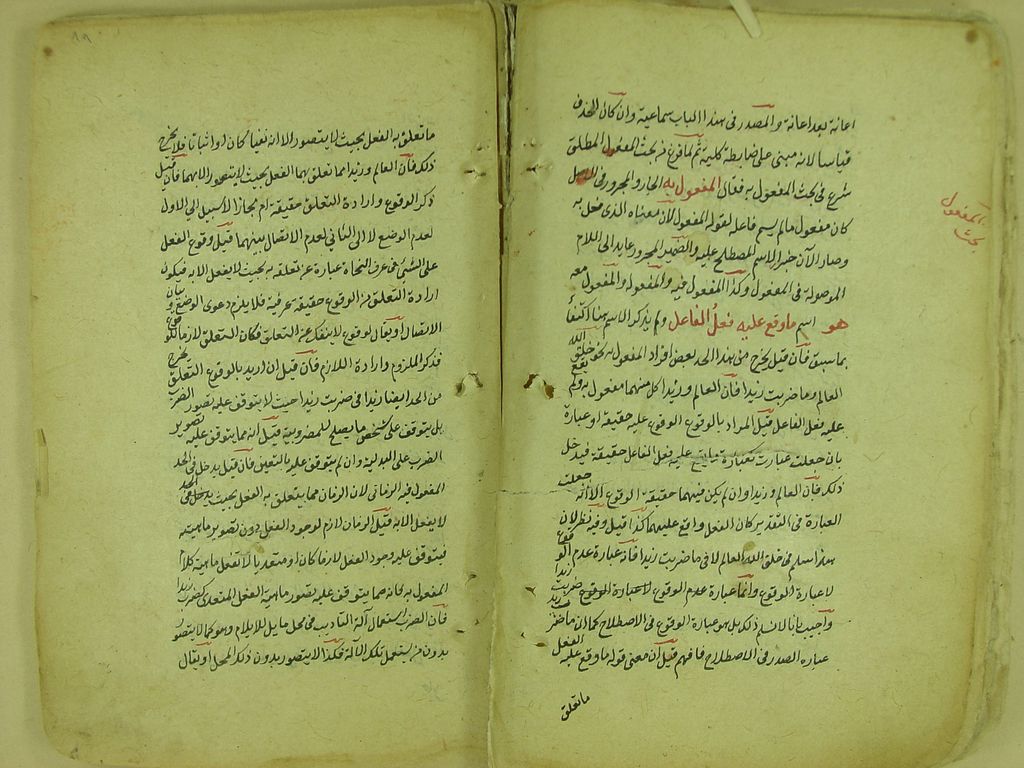 اعانة بعد اعانة والمصدر فى هذا الباب سماعية وان كان الحذف
قياسا لانه مبنى على ضابطة كلية ثم لما فرغ من بحث المفعول المطلق
شرع فى بحث المفعول به فقال المفعول به الجار والمجرور فى الاصل
كان مفعول مالم يسم فاعله لقوله المفعول لان معناه الذى فعل به
وصار الآن جزء الاسم المصطلح عليه والضمير المجرور عايد الى اللام
الموصولة فى المفعول وكذا المفعول فيه والمفعول له والمفعول معه
هو اسم ما وقع عليه فعل الفاعل ولم يذكر الاسم هنا اكتفأ
بما سبق فان قيل يخرج من هذا الحد بعض افراد المفعول به نحو خلق الله
العالم وما ضربت زيدا فان العالم وزيدا كل منهما مفعول به ولم يقع
عليه فعل الفاعل قيل المراد بالوقوع الوقوع عليه حقيقة او عبارة
بان جعلت عبارت كعبارة ما يقع عليه فعل الفاعل حقيقة فيدخل
ذلك فان العالم وزيدا وان لم يكن فيهما حقيقة الوقوع الا انه جعلت
العبارة فى التقدير كان الفعل واقع عليهما كذا قيل وفيه نظر لان
هذا سلم فى خلق الله العالم لا فى ما ضربت زيدا فانه عبارة عدم الوقوع
لا عبارة الوقوع وانما عبارة عدم الوقوع لا عبارة الوقوع ضربت زيدا
واجيب بانا لا نسلم ذلك بل هو عبارة الوقوع فى الاصطلاح كما ان ما ضرب زيد
عبارة الصدر فى الاصطلاح فافهم قيل ان معنى قوله ما وقع عليه الفعل
ما تعلق
بحث المفعول به
ما تعلق به الفعل بحيث لا يتصور الا انه نفيا كان او اثباتا فلا يخرج
ذلك فان العالم وزيدا مما تعلق بهما الفعل بحيث لا يتصور الا بهما فان قيل
ذكر الوقوع وارادة التعلق حقيقة ام مجاز لا سبيل الى الاول
لعدم الوضع لا الى الثانى لعدم الاتصال بينهما قيل وقوع الفعل
على الشئ فى عرف النحاة عبارة عن تعلقه به بحيث لا يفعل الا به فيكون
ارادة التعلق من الوقوع حقيقة عرفية فلا يلزم دعوى الوضع وبيان
الاتصال او يقال الوقوع لا ينفك عن التعلق فكان التعلق لازما للوقوع
فذكر الملزوم وارادة اللازم فان قيل ان اريد بالوقوع التعلق يخرج
من الحد ايضا زيدا فى ضربت زيدا حيث لا يتوقف عليه تصور الضرب
بل يتوقف على شخص ما يصلح للمضروبية قيل انه مما يتوقف عليه تصوير
الضرب على البدلية وان لم يتوقف عليه بالتعين فان قيل يدخل فى الحد
المفعول فيه الزمانى لان الزمان مما يتعلق به الفعل بحيث يدخل فى الحد
لا يفعل الا به قيل الزمان لازم لوجود الفعل دون تصوير ماهيته
فيتوقف عليه وجود الفعل لازما كان او متعديا لا تفعل ماهيته كلام
المفعول به فانه مما يتوقف عليه تصور ماهية الفعل المتعدى كضرب زيدا
فان الضرب استعمال آلة التاديب فى محل مايل للايلام وهو كما لا يتصور
بدون من يستعمل تلك الآلة فكذا لا يتصور بدون ذلك المحل او يقال